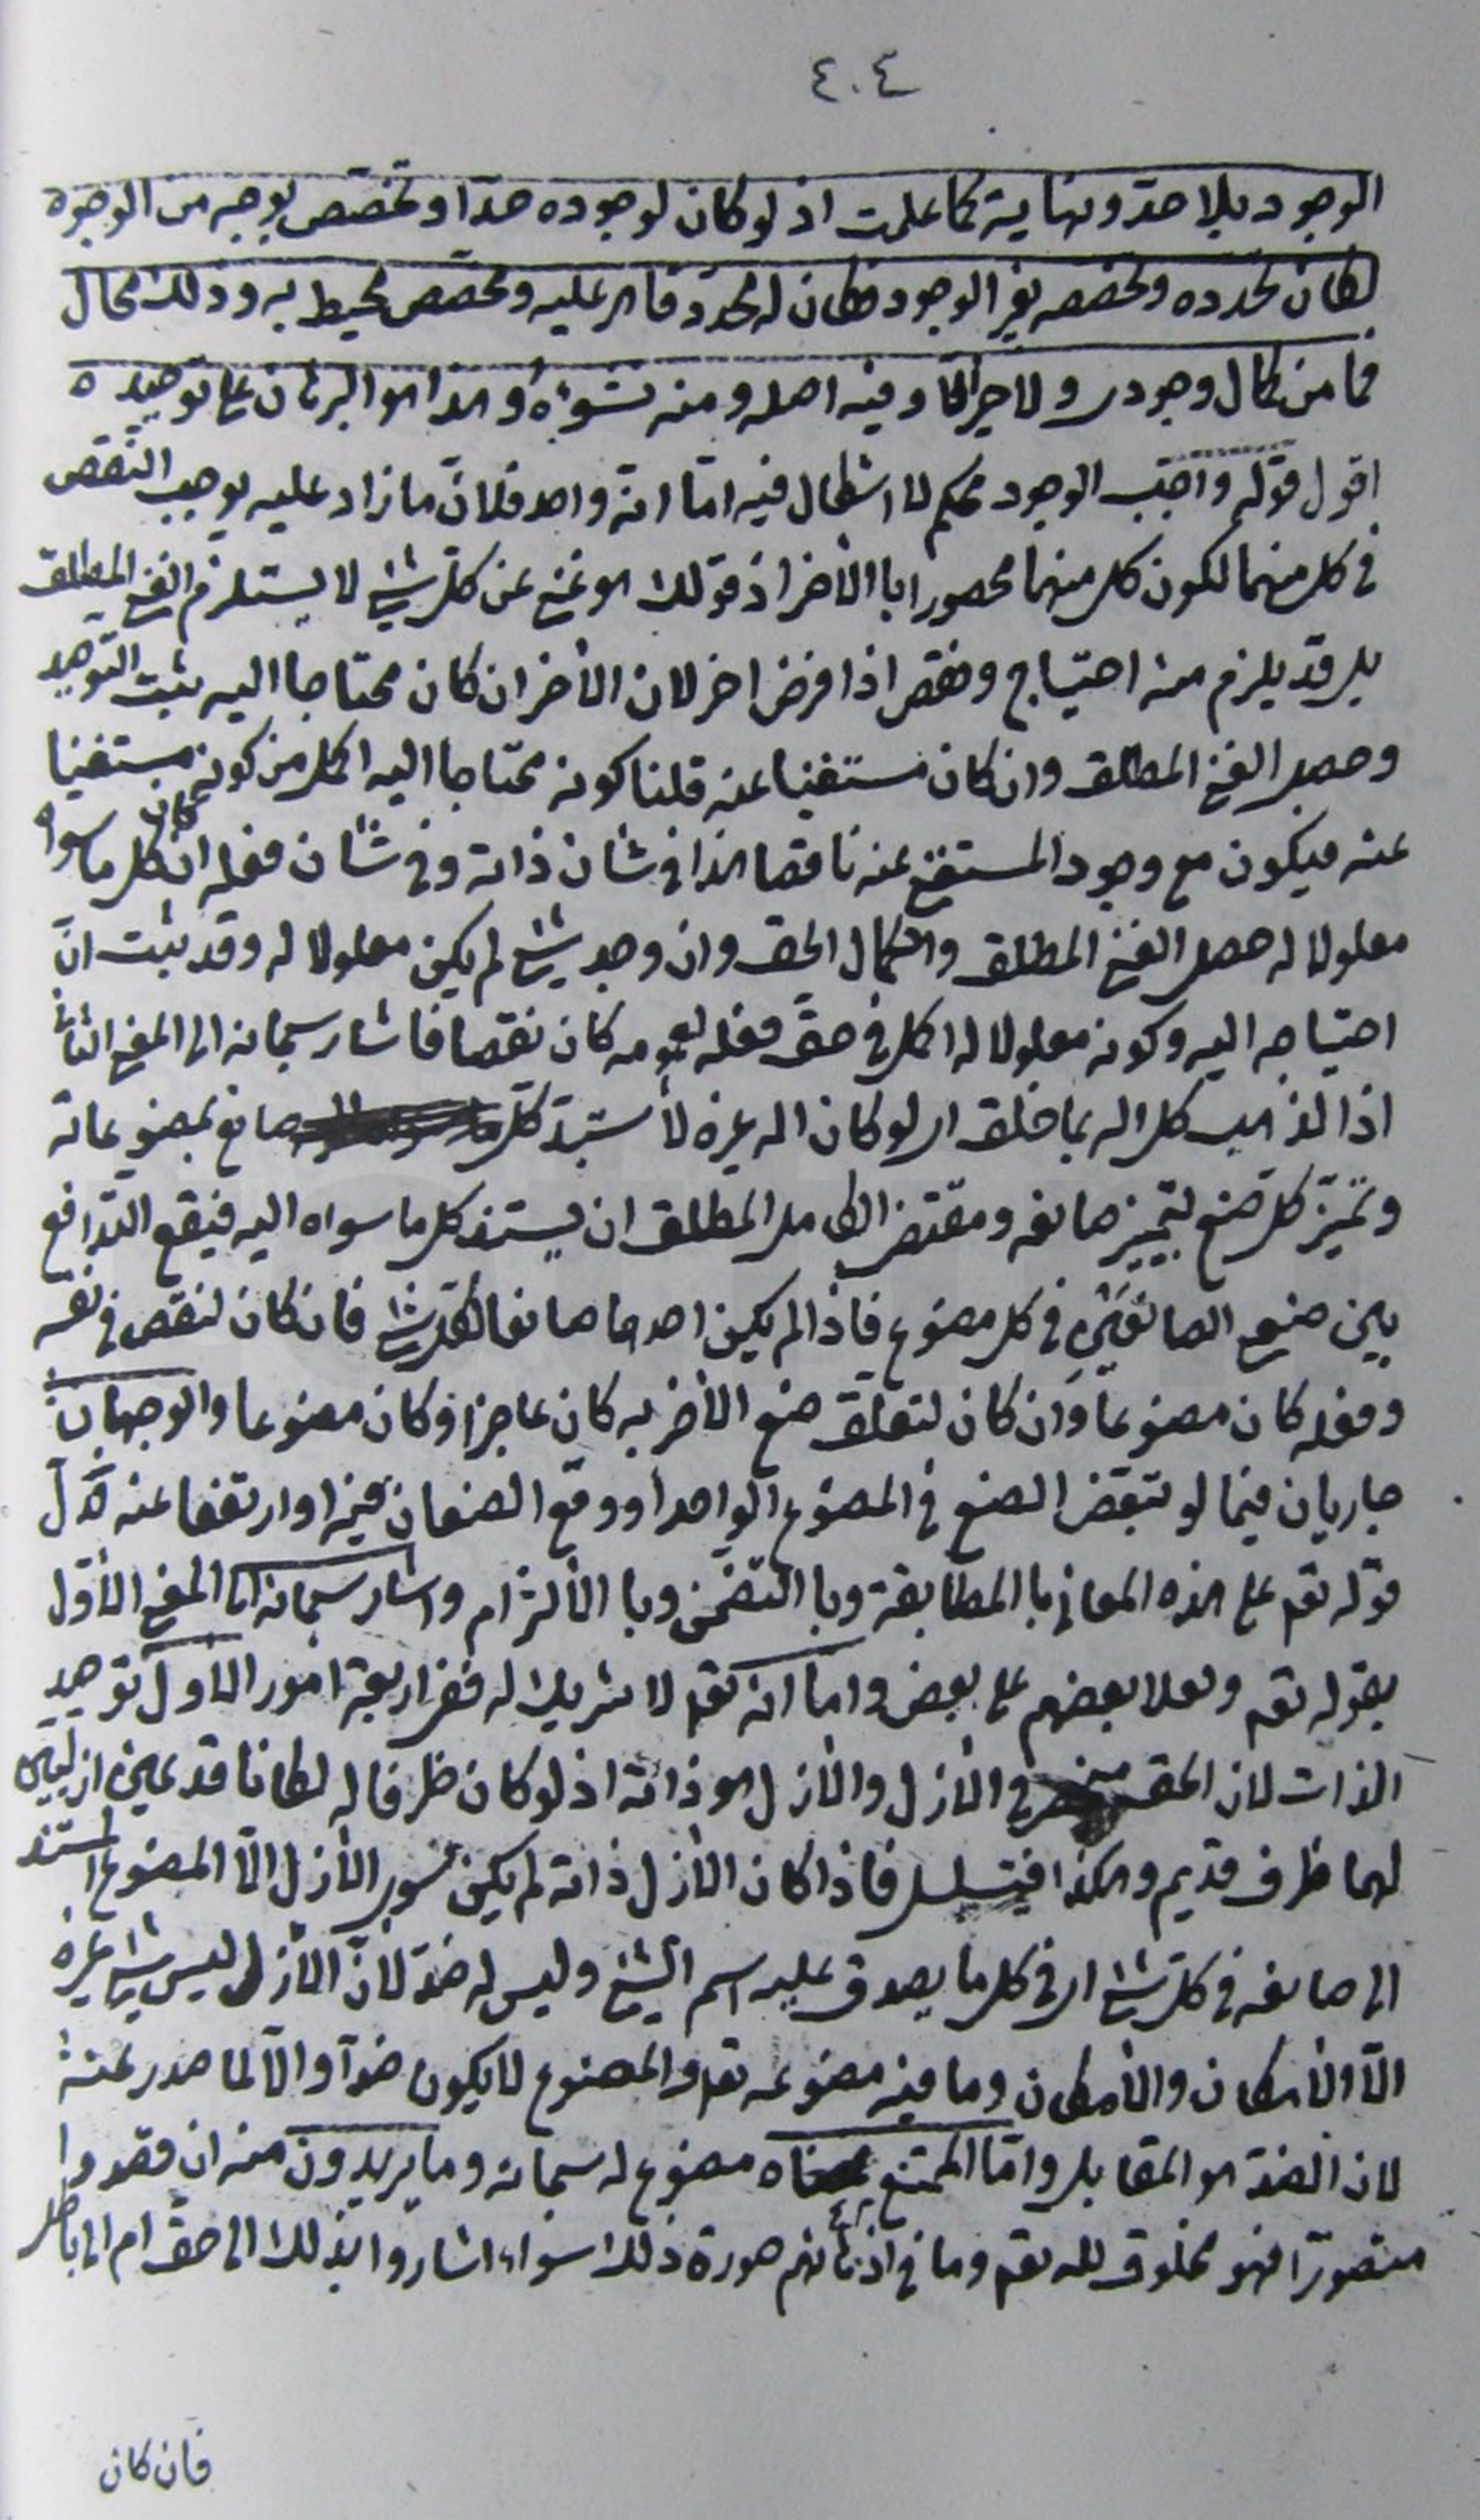 ٤٠٤
الوجود بلا حدّ ونهاية كما علمت اذ لو كان لوجوده حدّا وتخصّص بوجه من الوجوه
لكان تحدده وتخصصه بغير الوجود فكان له محدد قاهر عليه ومخصّص محيط به وذلك محال
فما من كمال وجودى ولا خير الّا وفيه اصله ومنه نشوؤه وهذا هو البرهان على توحيده
اقول قوله واجب الوجود محكم لا اشكال فيه امّا انّه واحد فلانّ ما زاد عليه يوجب النّقص
فى كل منهما لكون كل منهما محصورا باالأخر اذ قولك هو غنى عن كلّ شئ لا يستلزم الغنى المطلق
بل قد يلزم منه احتياج ونقص اذا فرض اخر لان الأخر ان كان محتاجا اليه ثبت التوحيد
وحصل الغنى المطلق وان كان مستغنيا عنه قلنا كونه محتاجا اليه اكمل من كونه مستغنيا
عنه فيكون مع وجود المستغنى عنه ناقصا هذا فى شان ذاته وفى شان فعله ان كان كل ما سواه
معلولا له حصل الغنى المطلق والكمال الحق وان وجد شئ لم يكن معلولا له وقد ثبت انّ
احتياجه اليه وكونه معلولا له اكمل فى حقّ فعله لعمومه كان نقصا فاشار سبحانه الى المعنى الثانى
اذا لذهب كل اله بما خلق اى لو كان اله غيره لأستبدّ كلّ صانع بمصنوعاته
وتميّز كل صنع بتميز صانعه ومقتضى الكامل المطلق ان يستند كل ما سواه اليه فيقع التدافع
بين صنع الصانعَيْنِ فى كل مصنوع فاذا لم يكن احدهما صانعا لكلّ شئ فان كان لنقص فى نفسه
وفعله كان مصنوعا وان كان لتعلّق صنع الأخر به كان عاجزا وكان مصنوعا والوجهان
جاريان فيما لو تبعّض الصنع فى المصنوع الواحد او وقع الصنعان فيه او ارتفعا عنه دلّ
قوله تع على هذه المعانى باالمطابقة وباالتضمّن وباالألتزام واشار سبحانه الى المعنى الأوّل
بقوله تع ولعلا بعضهم على بعض وامّا انه تع لا شريك له ففى اربعة امور الأوّل توحيد
الذات لان الحق فى الازل والازل هو ذاته اذ لو كان ظرفا له لكانا قديمين ازليّين
لهما ظرف قديم وهكذا فيتسلسل فاذا كان الأزل ذاته لم يكن سوى الأزل الّا المصنوع المستند
الى صانعه فى كلّ شئ اى فى كل ما يصدق عليه اسم الشئ وليس له ضدّ لانّ الأزل ليس شئ غيره
الّا الأمكان والأمكان وما فيه مصنوعه تع والمصنوع لا يكون ضدّا والّا لما صدر عنه
لان الضدّ هو المقابل وامّا الممتنع فمعناه مصنوع له سبحانه وما يريدون منه ان قصدوا
متصوّرا فهو مخلوق لله تع وما فى اذهانهم صورة ذلك سواء اشاروا بذلك الى حقّ ام الى باطل
فان كان